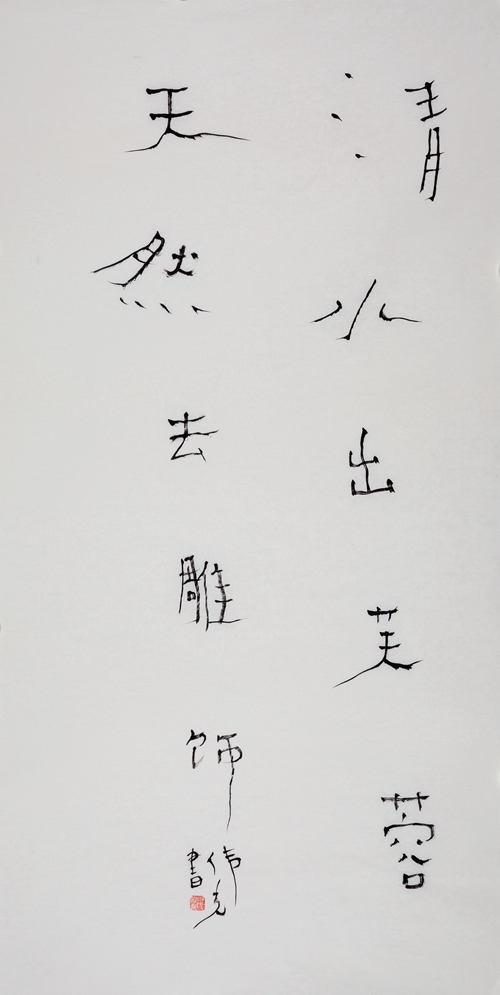 清水出芙蓉
天然去雕饰
伟克
書